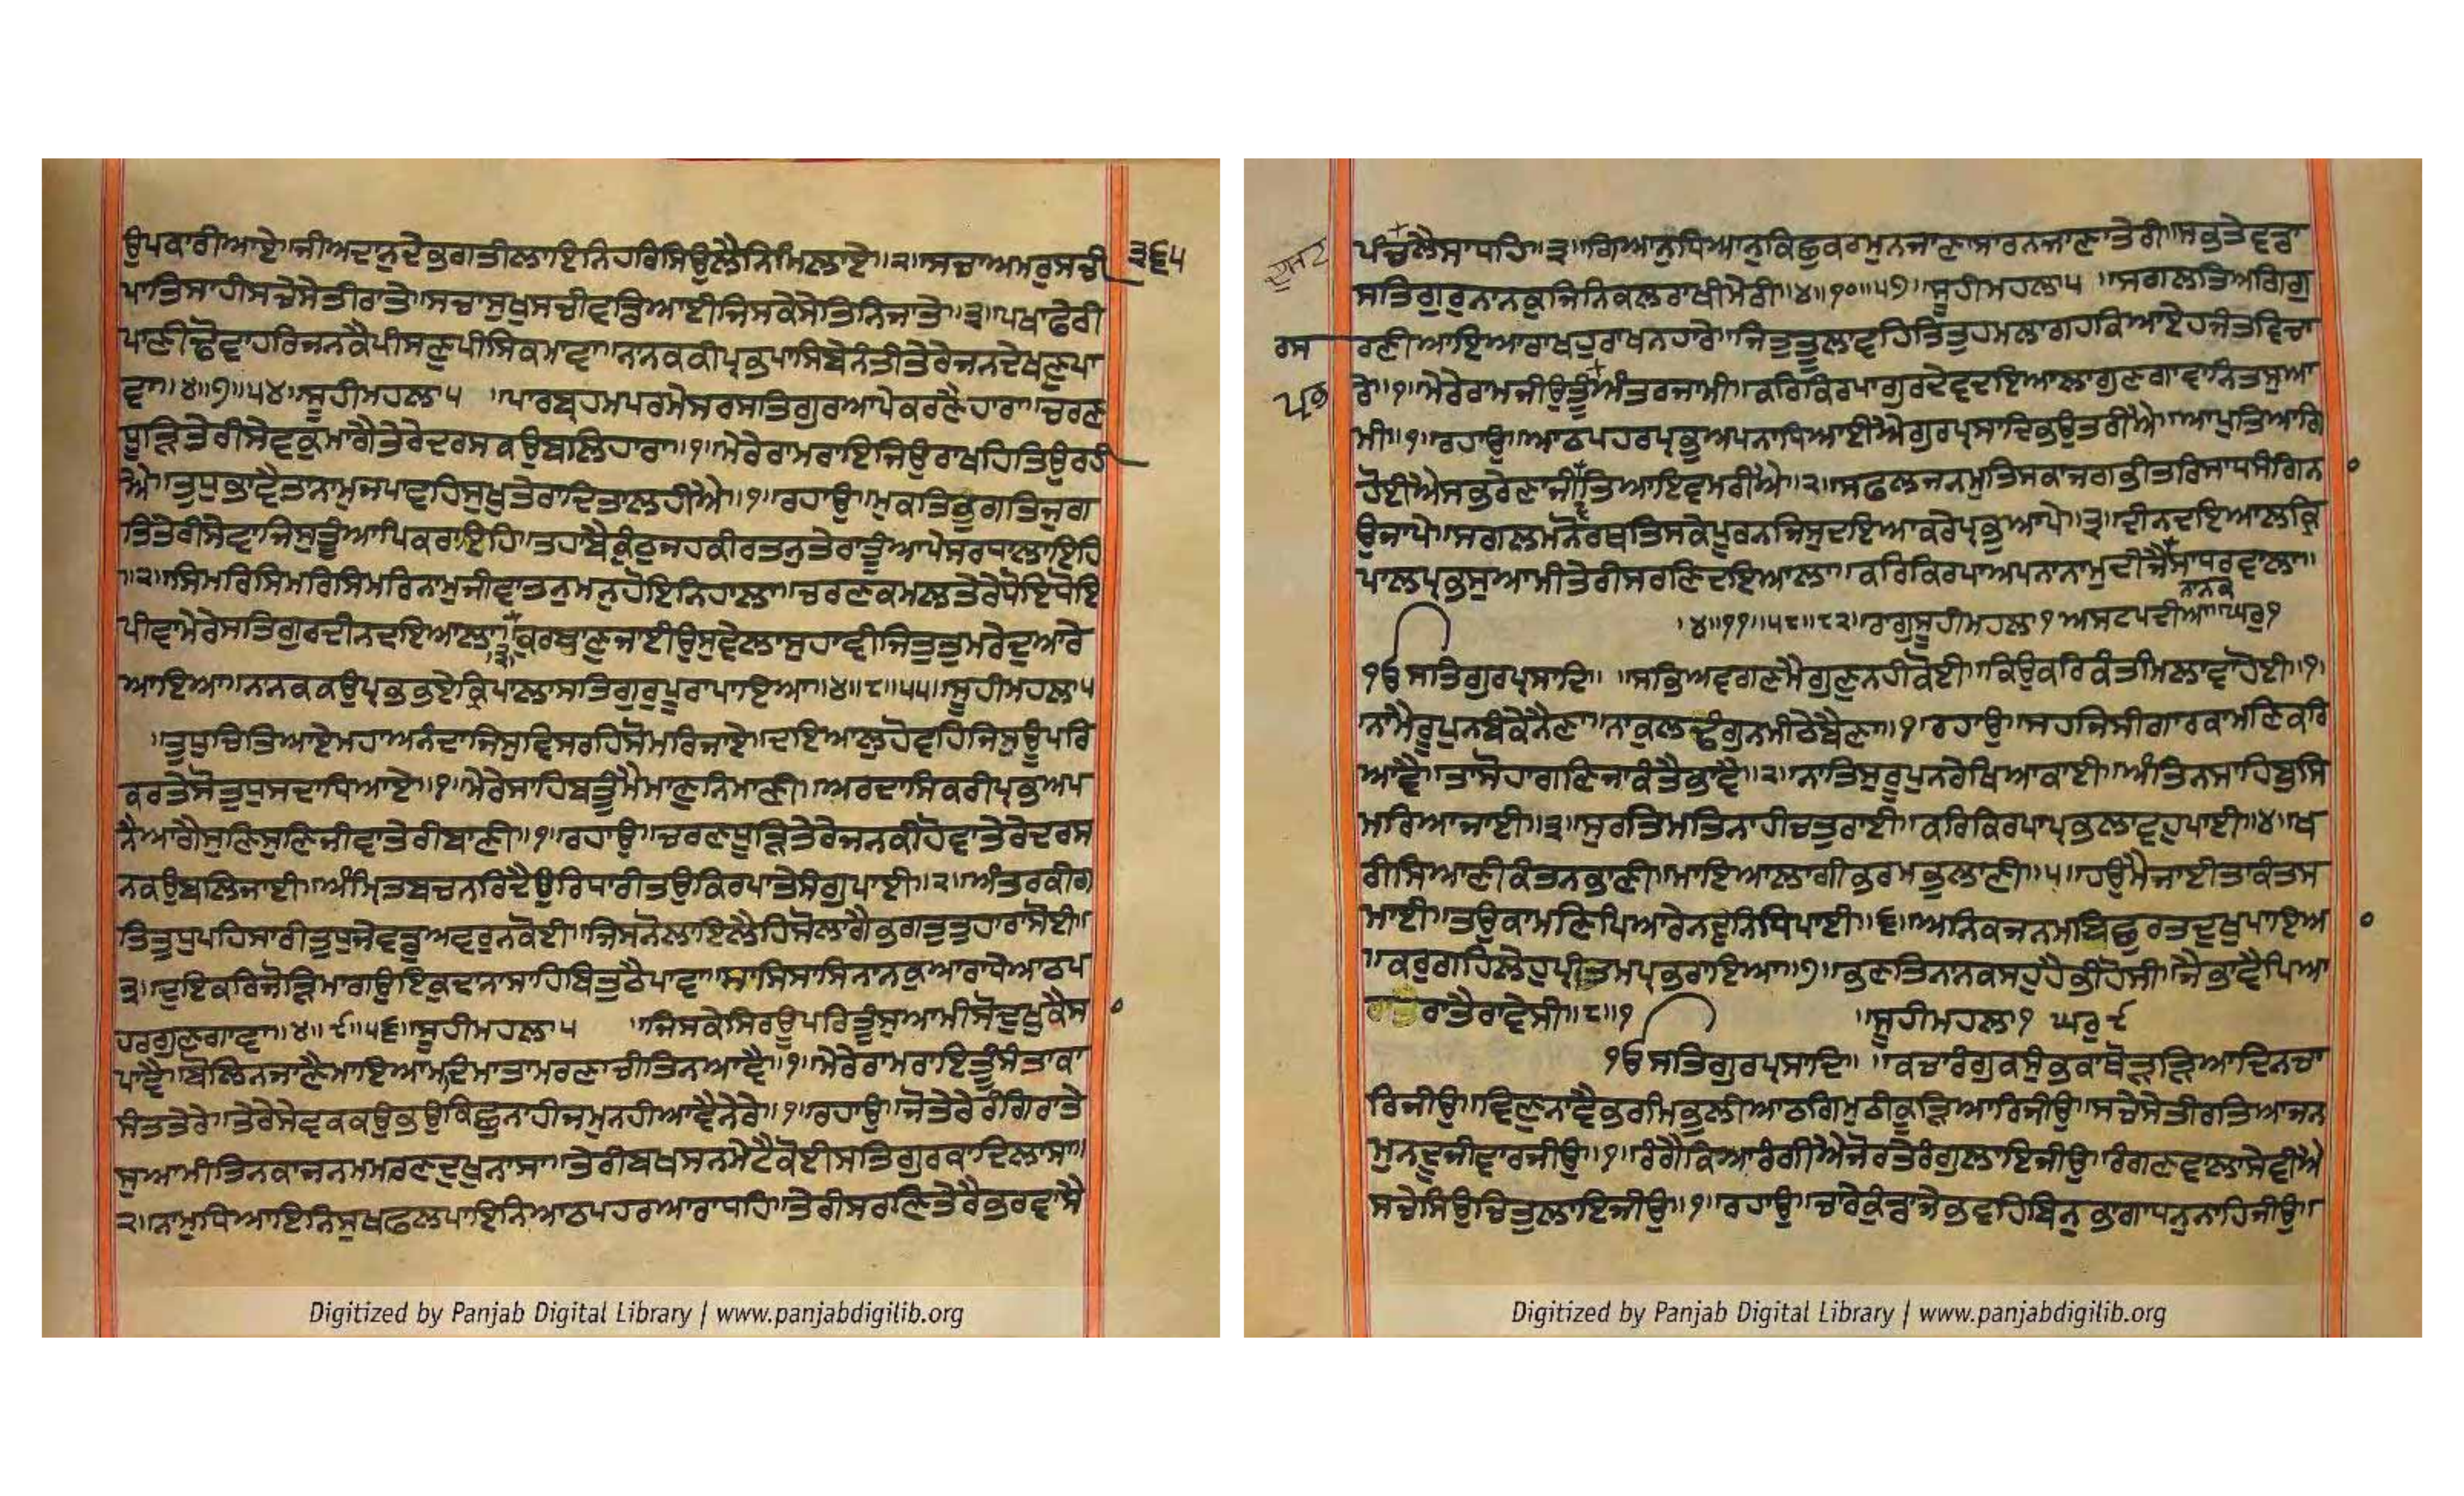 ਉਪਕਾਰੀਆਏ॥ਜੀਅਦਾਨੁਦੇਭਗਤੀਲਾਇਨਿਹਰਿਸਿਉਲੈਨਿਮਿਲਾਏ॥੨॥ਸਚਾਅਮਰੁਸਚੀ
੩੬੫
ਪਾਤਿਸਾਹੀਸਚੇਸੇਤੀਰਾਤੇ॥ਸਚਾਸੁਖੁਸਚੀਵਡਿਆਈਜਿਸਕੇਸੇਤਿਨਿਜਾਤੇ॥੩॥ਪਖਾਫੇਰੀ
ਪਾਣੀਢੋਵਾਹਰਿਜਨਕੈਪੀਸਣੁਪੀਸਿਕਮਾਵਾ॥ਨਨਕਕੀਪ੍ਰਭਪਾਸਿਬੇਨੰਤੀਤੇਰੇਜਨਦੇਖਣੁਪਾ
ਵਾ॥੪॥੭॥੫੪॥ਸੂਹੀਮਹਲਾ੫ ॥ਪਾਰਬ੍ਰਹਮਪਰਮੇਸਰਸਤਿਗੁਰਆਪੇਕਰਣੈਹਾਰਾ॥ਚਰਣ
ਧੂੜਿਤੇਰੀਸੇਵਕੁਮਾਗੈਤੇਰੇਦਰਸਕਉਬਲਿਹਾਰਾ॥੧॥ਮੇਰੇਰਾਮਰਾਇਜਿਉਰਾਖਹਿਤਿਉਰਹੀ
ਐ॥ਤੁਧੁਭਾਵੈਤਨਾਮੁਜਪਾਵਹਿਸੁਖੁਤੇਰਾਦਿਤਾਲਹੀਐ॥੧॥ਰਹਾਉ॥ਮੁਕਤਿਭੁਗਤਿਜੁਗ
ਤਿਤੇਰੀਸੇਵਾਜਿਸੁਤੂੰਆਪਿਕਰਾਇਹਿ॥ਤਹਾਬੈਕੁੰਠੁਜਹਕੀਰਤਨੁਤੇਰਾਤੂੰਆਪੇਸਰਧਲਾਇਹਿ
॥੨॥ਸਿਮਰਿਸਿਮਰਿਸਿਮਰਿਨਾਮੁਜੀਵਾਤਨੁਮਨੁਹੋਇਨਿਹਾਲਾ॥ਚਰਣਕਮਲਤੇਰੇਧੋਇਧੋਇ
ਪੀਵਾਮੇਰੇਸਤਿਗੁਰਦੀਨਦਇਆਲਾ॥੩॥ਕੁਰਬਾਣੁਜਾਈਉਸੁਵੇਲਾਸੁਹਾਵੀਜਿਤੁਤੁਮਰੇਦੁਆਰੇ
ਆਇਆ॥ਨਨਕਕਉਪ੍ਰਭਭਏਕ੍ਰਿਪਾਲਾਸਤਿਗੁਰੁਪੂਰਾਪਾਇਆ॥੪॥੮॥੫੫॥ਸੂਹੀਮਹਲਾ੫
॥ਤੁਧੁਚਿਤਿਆਏਮਹਾਅਨੰਦਾਜਿਸੁਵਿਸਰਹਿਸੋਮਰਿਜਾਏ॥ਦਇਆਲੁਹੋਵਹਿਜਿਸੁਊਪਰਿ
ਕਰਤੇਸੋਤੁਧੁਸਦਾਧਿਆਏ॥੧॥ਮੇਰੇਸਾਹਿਬਤੂੰਮੈਮਾਣੁਨਿਮਾਣੀ॥ਅਰਦਾਸਿਕਰੀਪ੍ਰਭਅਪ
ਨੈਆਗੈਸੁਣਿਸੁਣਿਜੀਵਾਤੇਰੀਬਾਣੀ॥੧॥ਰਹਾਉ॥ਚਰਣਧੂੜਿਤੇਰੇਜਨਕੀਹੋਵਾਤੇਰੇਦਰਸ
ਨਕਉਬਲਿਜਾਈ॥ਅੰਮ੍ਰਿਤਬਚਨਰਿਦੈਉਰਿਧਾਰੀਤਉਕਿਰਪਾਤੇਸੰਗੁਪਾਈ॥੨॥ਅੰਤਰਕੀਗ
ਤਿਤੁਧੁਪਹਿਸਾਰੀਤੁਧੁਜੇਵਡੁਅਵਰੁਨਕੋਈ॥ਜਿਸਨੋਲਾਇਲੈਹਿਸੋਲਾਗੈਭਗਤੁਤੁਹਾਰਾਸੋਈ॥
੩॥ਦੁਇਕਰਿਜੋੜਿਮਾਗਉਇਕੁਦਾਨਾਸਾਹਿਬਿਤੁਠੈਪਾਵਾ॥ਸਾਸਿਸਾਸਿਨਾਨਕੁਆਰਾਧੇਆਠਪ
ਹਰਗੁਣਗਾਵਾ॥੪॥੯॥੫੬॥ਸੂਹੀਮਹਲਾ੫ ॥ਜਿਸਕੇਸਿਰਊਪਰਿਤੂੰਸੁਆਮੀਸੋਦੁਖੁਕੈਸ
ਪਾਵੈ॥ਬੋਲਿਨਜਾਣੈਮਾਇਆਮਦਿਮਾਤਾਮਰਣਾਚੀਤਿਨਆਵੈ॥੧॥ਮੇਰੇਰਾਮਰਾਇਤੂੰਸੰਤਾਕਾ
ਸੰਤਤੇਰੇ॥ਤੇਰੇਸੇਵਕਕਉਭਉਕਿਛੁਨਾਹੀਜਮੁਨਹੀਆਵੈਨੇਰੇ॥੧॥ਰਹਾਉ॥ਜੋਤੇਰੇਰੰਗਿਰਾਤੇ
ਸੁਆਮੀਤਿਨਕਾਜਨਮਮਰਣਦੁਖੁਨਾਸਾ॥ਤੇਰੀਬਖਸਨਮੇਟੈਕੋਈਸਤਿਗੁਰਕਾਦਿਲਾਸਾ॥
੨॥ਨਾਮੁਧਿਆਇਨਿਸੁਖਫਲਪਾਇਨਿਆਠਪਹਰਆਰਾਧਹਿ॥ਤੇਰੀਸਰਣਿਤੇਰੈਭਰਵਾਸੈ
Digitized by Panjab Digital Library | www.panjabdigilib.org
ਪੰਚਲੈਸਾਧਹਿ॥੩॥ਗਿਆਨੁਧਿਆਨੁਕਿਛੁਕਰਮੁਨਜਾਣਾਸਾਰਨਜਾਣਾਤੇਰੀ॥ਸਭਤੇਵਡਾ
ਸਤਿਗੁਰੁਨਾਨਕੁਜਿਨਿਕਲਰਾਖੀਮੇਰੀ॥੪॥੧੦॥੫੭॥ਸੂਹੀਮਹਲਾ੫ ॥ਸਗਲਤਿਆਗਿਗੁ
ਰਸ
ਰਣੀਆਇਆਰਾਖਹੁਰਾਖਨਹਾਰੇ॥ਜਿਤੁਤੂਲਾਵਹਿਤਿਤੁਹਮਲਾਗਹਕਿਆਏਹਜੰਤਵਿਚਾ
ਰੇ॥੧॥ਮੇਰੇਰਾਮਜੀਉਤੂੰਅੰਤਰਜਾਮੀ॥ਕਰਿਕਿਰਪਾਗੁਰਦੇਵਦਇਆਲਾਗੁਣਗਾਵਾਨਿਤਸੁਆ
ਮੀ॥੧॥ਰਹਾਉ॥ਆਠਪਹਰਪ੍ਰਭੁਅਪਨਾਧਿਆਈਐਗੁਰਪ੍ਰਸਾਦਿਭਉਤਰੀਐ॥ਆਪੁਤਿਆਗਿ
ਹੋਈਐਸਭਰੇਣਾਜੀਤਿਆਇਵਮਰੀਐ॥੨॥ਸਫਲਜਨਮੁਤਿਸਕਾਜਗਭੀਤਰਿਸਾਧਸੰਗਿਨ
ਉਜਾਪੇ॥ਸਗਲਮਨੋਰਥਤਿਸਕੇਪੂਰਨਜਿਸੁਦਇਆਕਰੇਪ੍ਰਭੁਆਪੇ॥੩॥ਦੀਨਦਇਆਲਕ੍ਰਿ
ਪਾਲਪ੍ਰਭਸੁਆਮੀਤੇਰੀਸਰਣਿਦਇਆਲਾ॥ਕਰਿਕਿਰਪਾਅਪਨਾਨਾਮੁਦੀਜੈਸਾਧਰਵਾਲਾ॥
ਨਾਨਕ
॥੪॥੧੧॥੫੮॥੮੨॥ਰਾਗੁਸੂਹੀਮਹਲਾ੧ਅਸਟਪਦੀਆ॥ਘਰੁ੧
ੴਸਤਿਗੁਰਪ੍ਰਸਾਦਿ॥ ॥ਸਭਿਅਵਗਣਮੈਗੁਣੁਨਹੀਕੋਈ॥ਕਿਉਕਰਿਕੰਤਮਿਲਾਵਾਹੋਈ॥੧॥
ਨਾਮੈਰੂਪੁਨਬੰਕੇਨੈਣਾ॥ਨਾਕੁਲਢੰਗੁਨਮੀਠੇਬੈਣਾ॥੧॥ਰਹਾਉ॥ਸਹਜਿਸੀਗਾਰਕਾਮਣਿਕਰਿ
ਆਵੈ॥ਤਾਸੋਹਾਗਣਿਜਾਕੰਤੈਭਾਵੈ॥੨॥ਨਾਤਿਸੁਰੂਪੁਨਰੇਖਿਆਕਾਈ॥ਅੰਤਿਨਸਾਹਿਬੁਸਿ
ਮਰਿਆਜਾਈ॥੩॥ਸੁਰਤਿਮਤਿਨਾਹੀਚਤੁਰਾਈ॥ਕਰਿਕਿਰਪਾਪ੍ਰਭਲਾਵਹੁਪਾਈ॥੪॥ਖ
ਰੀਸਿਆਣੀਕੰਤਨਭਾਣੀ॥ਮਾਇਆਲਾਗੀਭਰਮਭੁਲਾਣੀ॥੫॥ਹਉਮੈਜਾਈਤਾਕੰਤਸ
ਮਾਈ॥ਤਉਕਾਮਣਿਪਿਆਰੇਨਵਨਿਧਿਪਾਈ॥੬॥ਅਨਿਕਜਨਮਬਿਛੁਰਤਦੁਖੁਪਾਇਅ
॥ਕਰੁਗਹਿਲੇਹੁਪ੍ਰੀਤਮਪ੍ਰਭਰਾਇਆ॥੭॥ਭਣਤਿਨਨਕਸਹੁਹੈਭੀਹੋਸੀ॥ਜੈਭਾਵੈਪਿਆ
ਰਾਤੈਰਾਵੇਸੀ॥੮॥੧ ॥ਸੂਹੀਮਹਲਾ੧ ਘਰੁ੯
ੴਸਤਿਗੁਰਪ੍ਰਸਾਦਿ॥ ॥ਕਚਾਰੰਗੁਕਸੁੰਭਕਾਥੋੜੜਿਆਦਿਨਚਾ
ਰਿਜੀਉ॥ਵਿਣੁਨਾਵੈਭਰਮਿਭੁਲੀਆਠਗਿਮੁਠੀਕੂੜਿਆਰਿਜੀਉ॥ਸਚੇਸੇਤੀਰਤਿਆਜਨ
ਮੁਨਦੂਜੀਵਾਰਜੀਉ॥੧॥ਰੰਗੇਕਿਆਰੰਗੀਐਜੋਰਤੇਰੰਗੁਲਾਇਜੀਉ॥ਰੰਗਣਵਾਲਾਸੇਵੀਐ
ਸਚੇਸਿਉਚਿਤੁਲਾਇਜੀਉ॥੧॥ਰਹਾਉ॥ਚਾਰੇਕੁੰਡਾਜੇਭਵਹਿਬਿਨੁਭਾਗਾਧਨੁਨਾਹਿਜੀਉ॥
Digitized by Panjab Digital Library | www.panjabdigilib.org